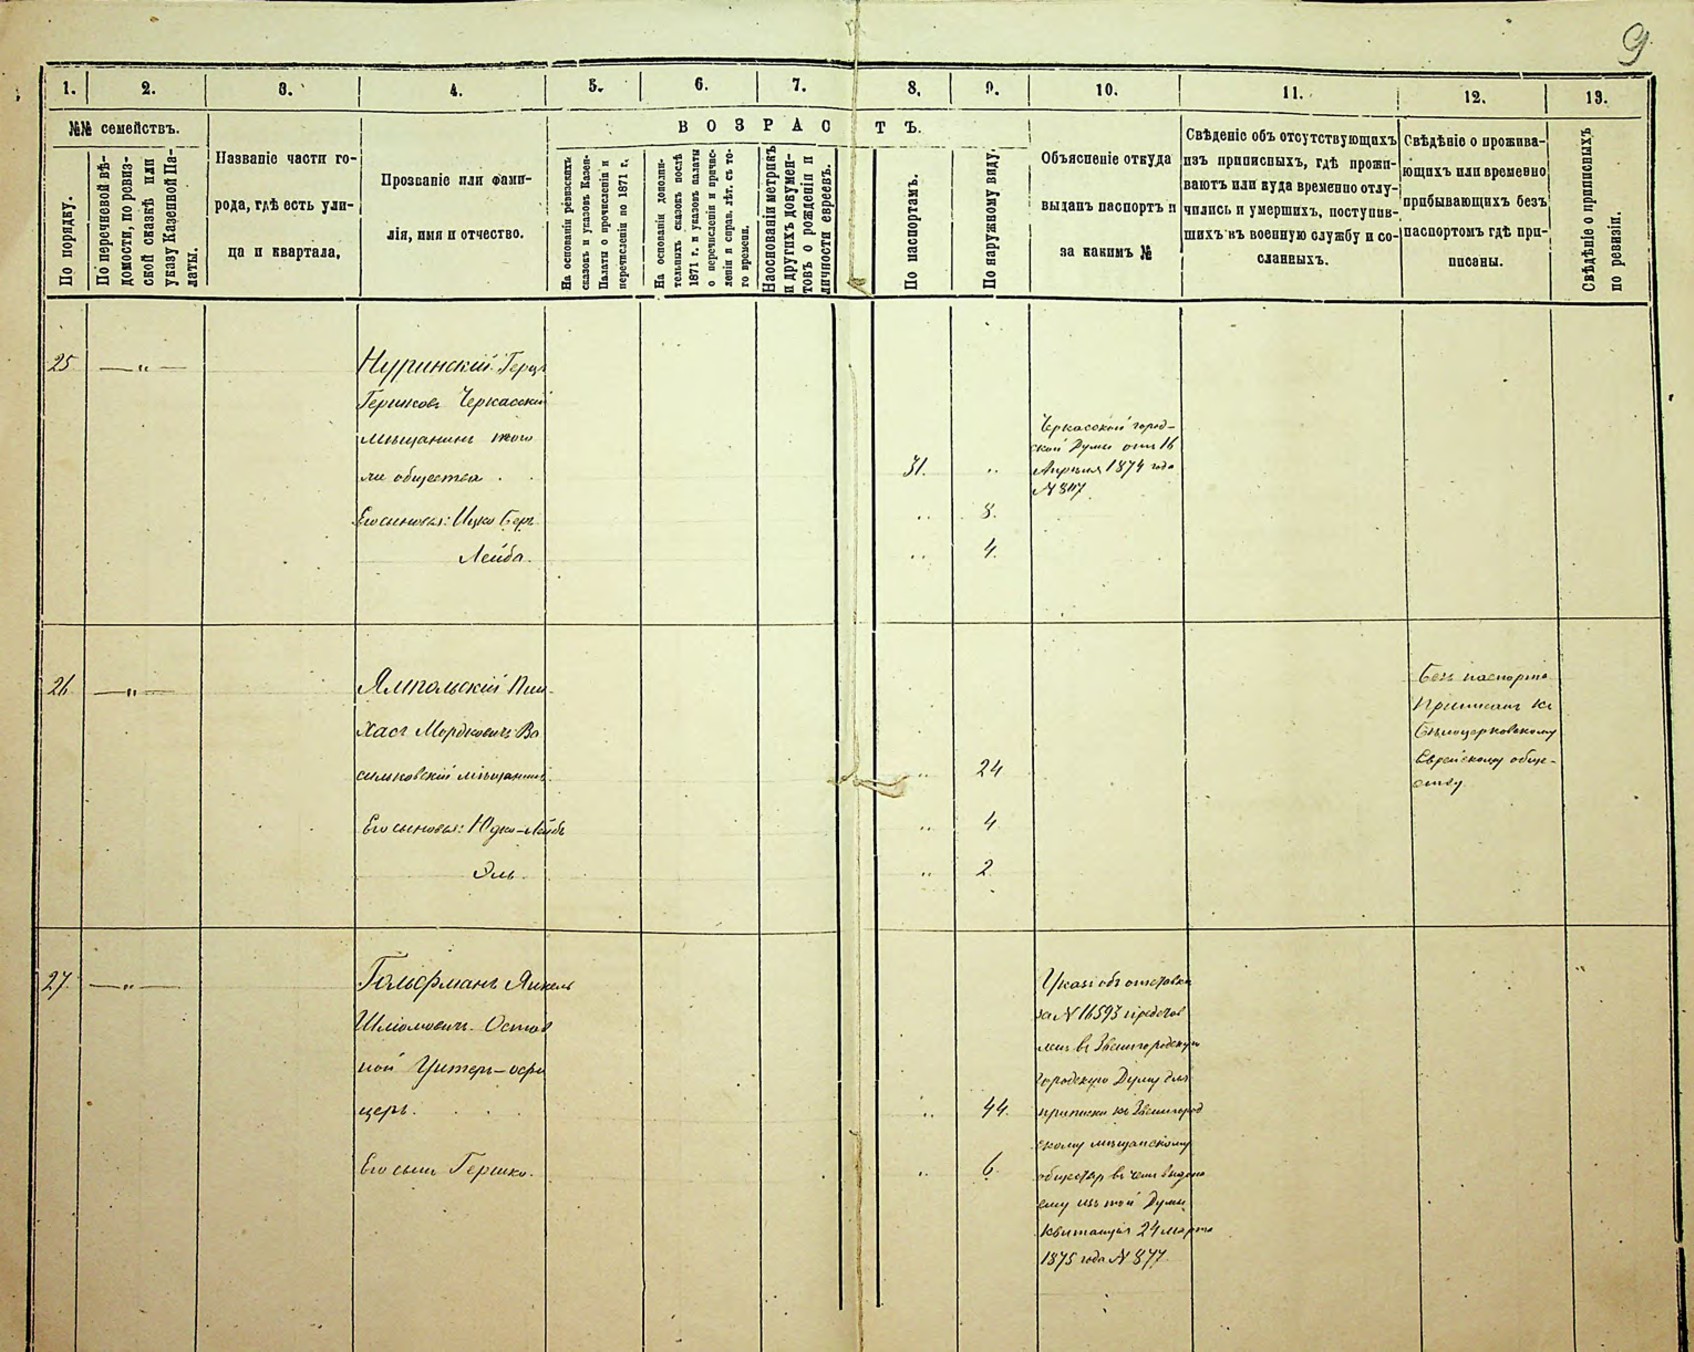 9
1. 2. 3. 4. 5. 6. 7. 8. 9. 10. 11. 12. 13.
№№ семействъ.
По порядку.
По перечневой вѣ-
домости, по ревиз-
ской сказкѣ или
указу Казенной Па-
латы.
Названіе части го-
рода, гдѣ есть ули-
ца и квартала.
Прозваніе или фами-
лія, имя и отчество.
ВОЗРАСТЪ.
На основаніи ревизскихъ
сказокъ и указовъ Казен-
Палаты о прочисленіи и
перечисленіи по 1871 г.
На основаніи дополни-
тельныхъ сказокъ послѣ
1871 г. и указовъ палаты
о перечисленіи и причис-
леніи и справ. лѣт. съ то-
го времени.
Наоснованіи метрикъ
и другихъ докумен-
товъ о рожденіи и
личности евреевъ.
По паспортамъ.
По наружному виду.
Объясненіе откуда
выданъ паспортъ и
за какимъ №
Свѣденіе объ отсутствующихъ
изъ приписныхъ, гдѣ прожи-
ваютъ или куда временно отлу-
чились и умершихъ, поступив-
шихъ въ военную службу и со-
сланныхъ.
Свѣдѣніе о прожива-
ющихъ или временно
прибывающихъ безъ
паспортомъ гдѣ при-
писаны.
Свѣдѣніе о приписныхъ
по ревизіи.
25 — „ —
Нуринскій Герцъ
Гершковъ Черкасскій
мѣщанинъ того
же общества
31. „
Его сыновья: Ицко Беръ
„ 8.
Лейба.
„ 4.
Черкасской город-
ской Думы отъ 16
Апрѣля 1874 года
№ 847
26 — „ —
Ямпольскій Пин-
хасъ Мордковичъ Ва
сильковскій мѣщанинъ
„ 24
Его сыновья: Юдко-Лейбъ
„ 4
Эль.
„ 2
Безъ паспорта
Приписанъ къ
Бѣлоцерковскому
Еврейскому обще-
ству
27. — „ —
Гольфманъ Янкель
Шліомовичъ Остав
ной Унтеръ-офи
церъ.
„ 44.
Его сынъ Гершко.
„ 6.
Указъ объ отставки
за № 16593 представ
ленъ въ Звенигородскую
Городскую Думу для
приписки къ Звенигород
скому мѣщанскому
обществу въ чемъ выдана
ему изъ той Думы
квитанція 24 марта
1875 года № 877.